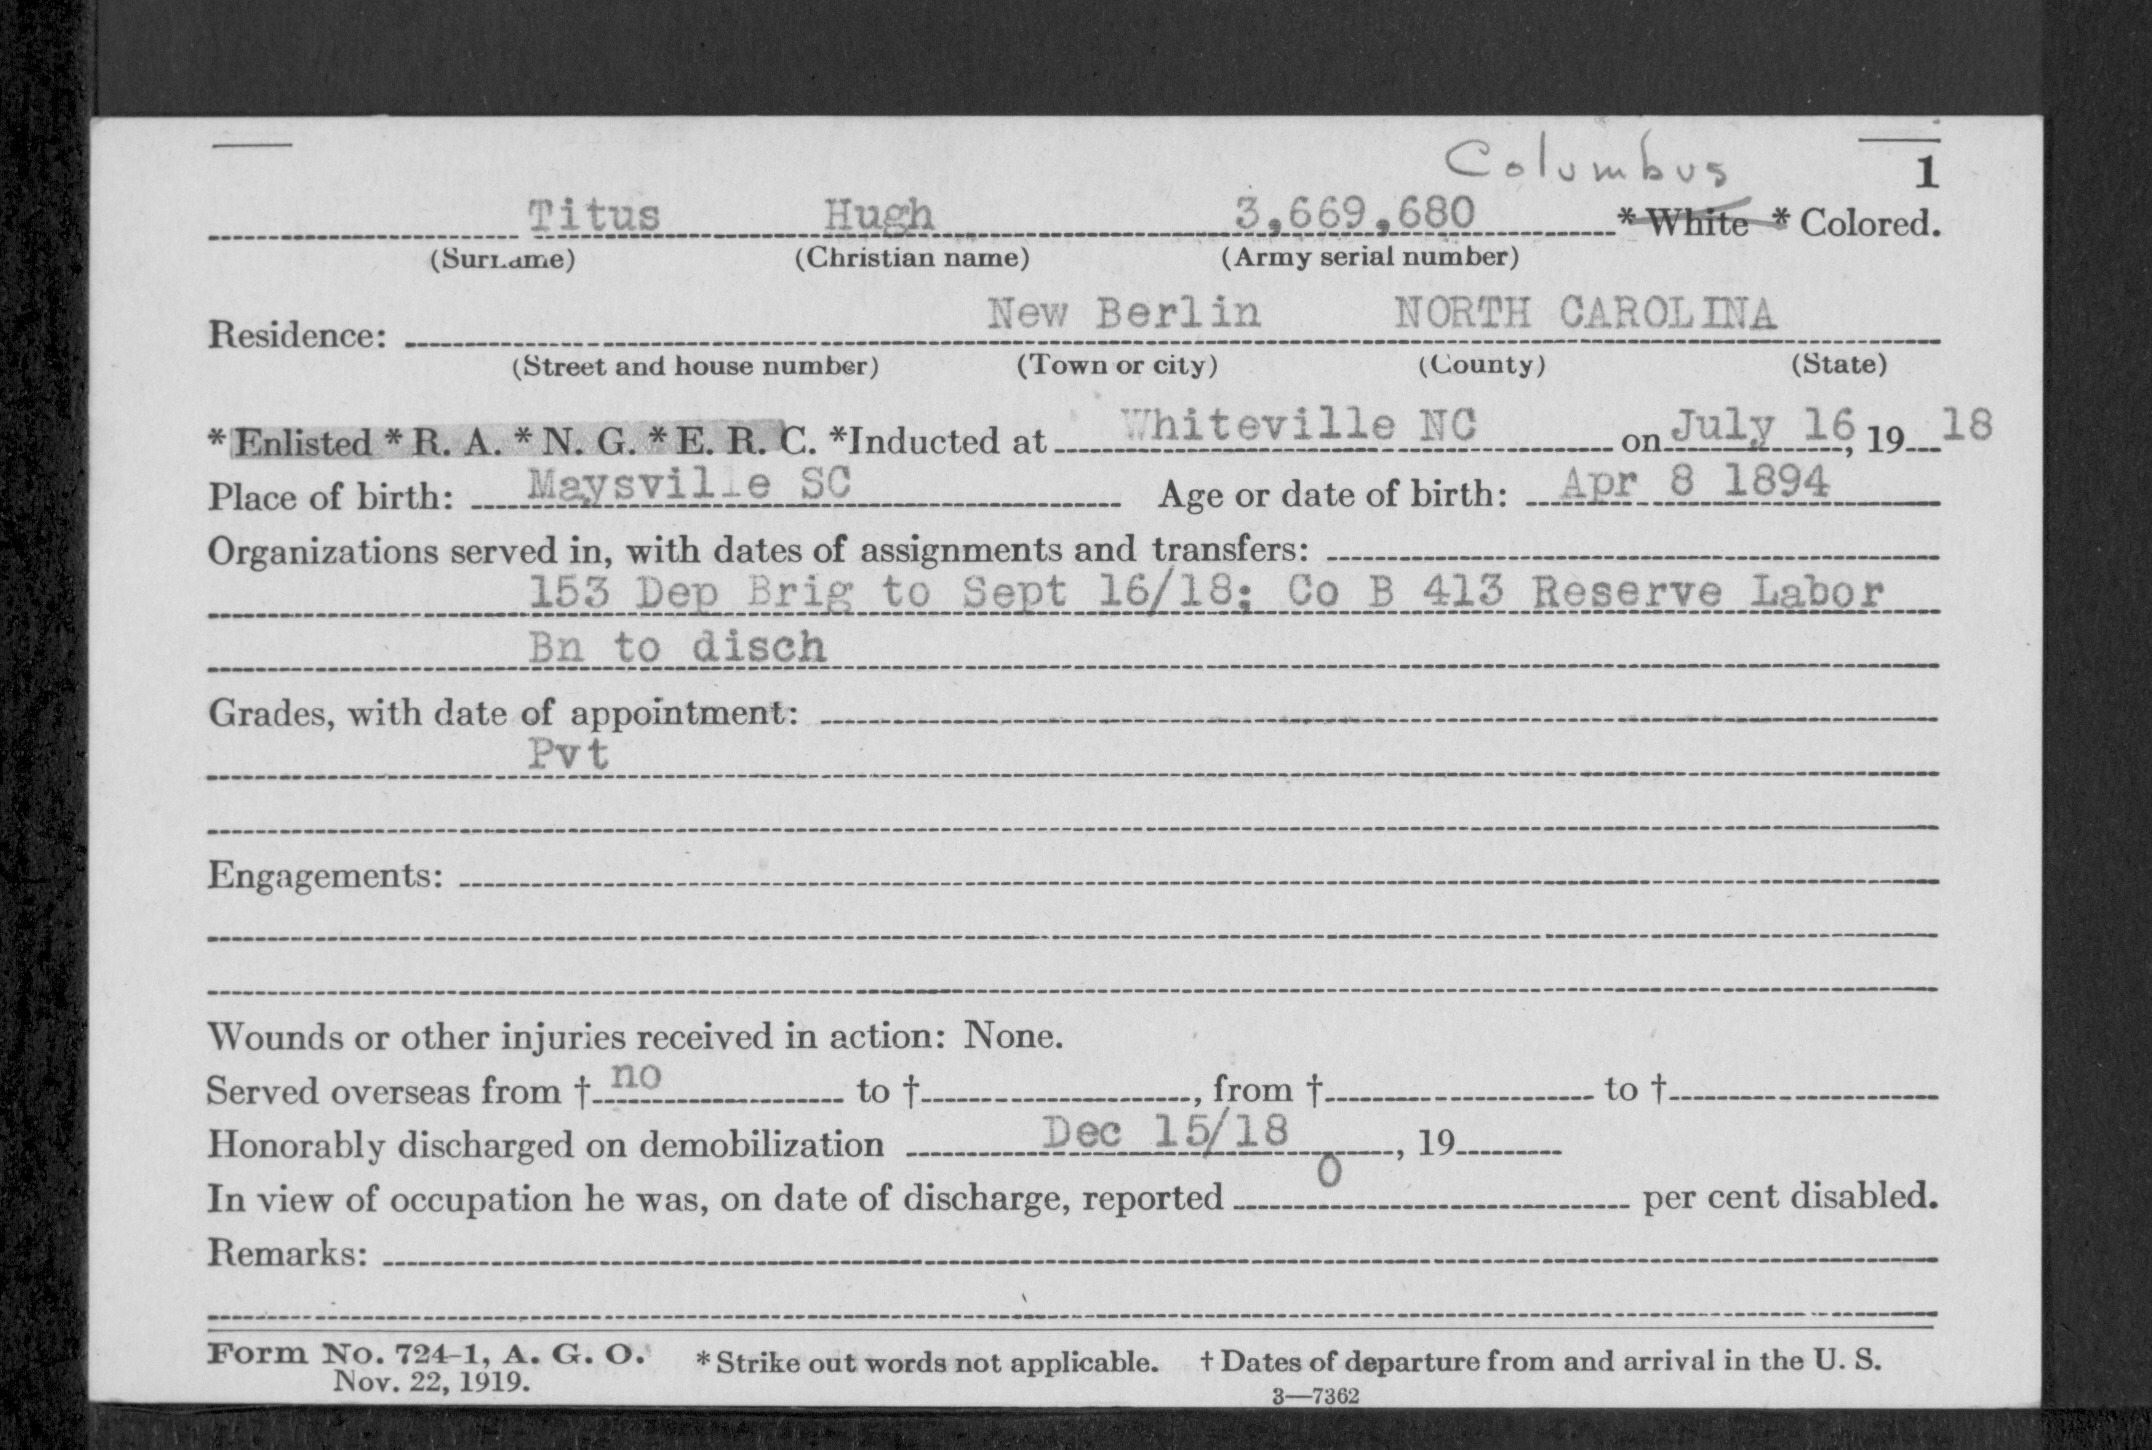 Columbus
1
Titus Hugh 3,669,680 * White * Colored.
(Surname) (Christian name) (Army serial number)
New Berlin NORTH CAROLINA
Residence:
(Street and house number) (Town or city) (County) (State)
* Enlisted * R. A. * N. G. * E. R. C. *Inducted at Whiteville NC on July 16, 19 18
Place of birth: Maysville SC Age or date of birth: Apr 8 1894
Organizations served in, with dates of assignments and transfers:
153 Dep Brig to Sept 16/18; Co B 413 Reserve Labor
Bn to disch
Grades, with date of appointment:
Pvt
Engagements:
Wounds or other injuries received in action: None.
Served overseas from † no to †, from † to †
Honorably discharged on demobilization Dec 15/18, 19
In view of occupation he was, on date of discharge, reported 0 per cent disabled.
Remarks:
Form No. 724-1, A. G. O. * Strike out words not applicable. † Dates of departure from and arrival in the U. S.
Nov. 22, 1919.
3—7362